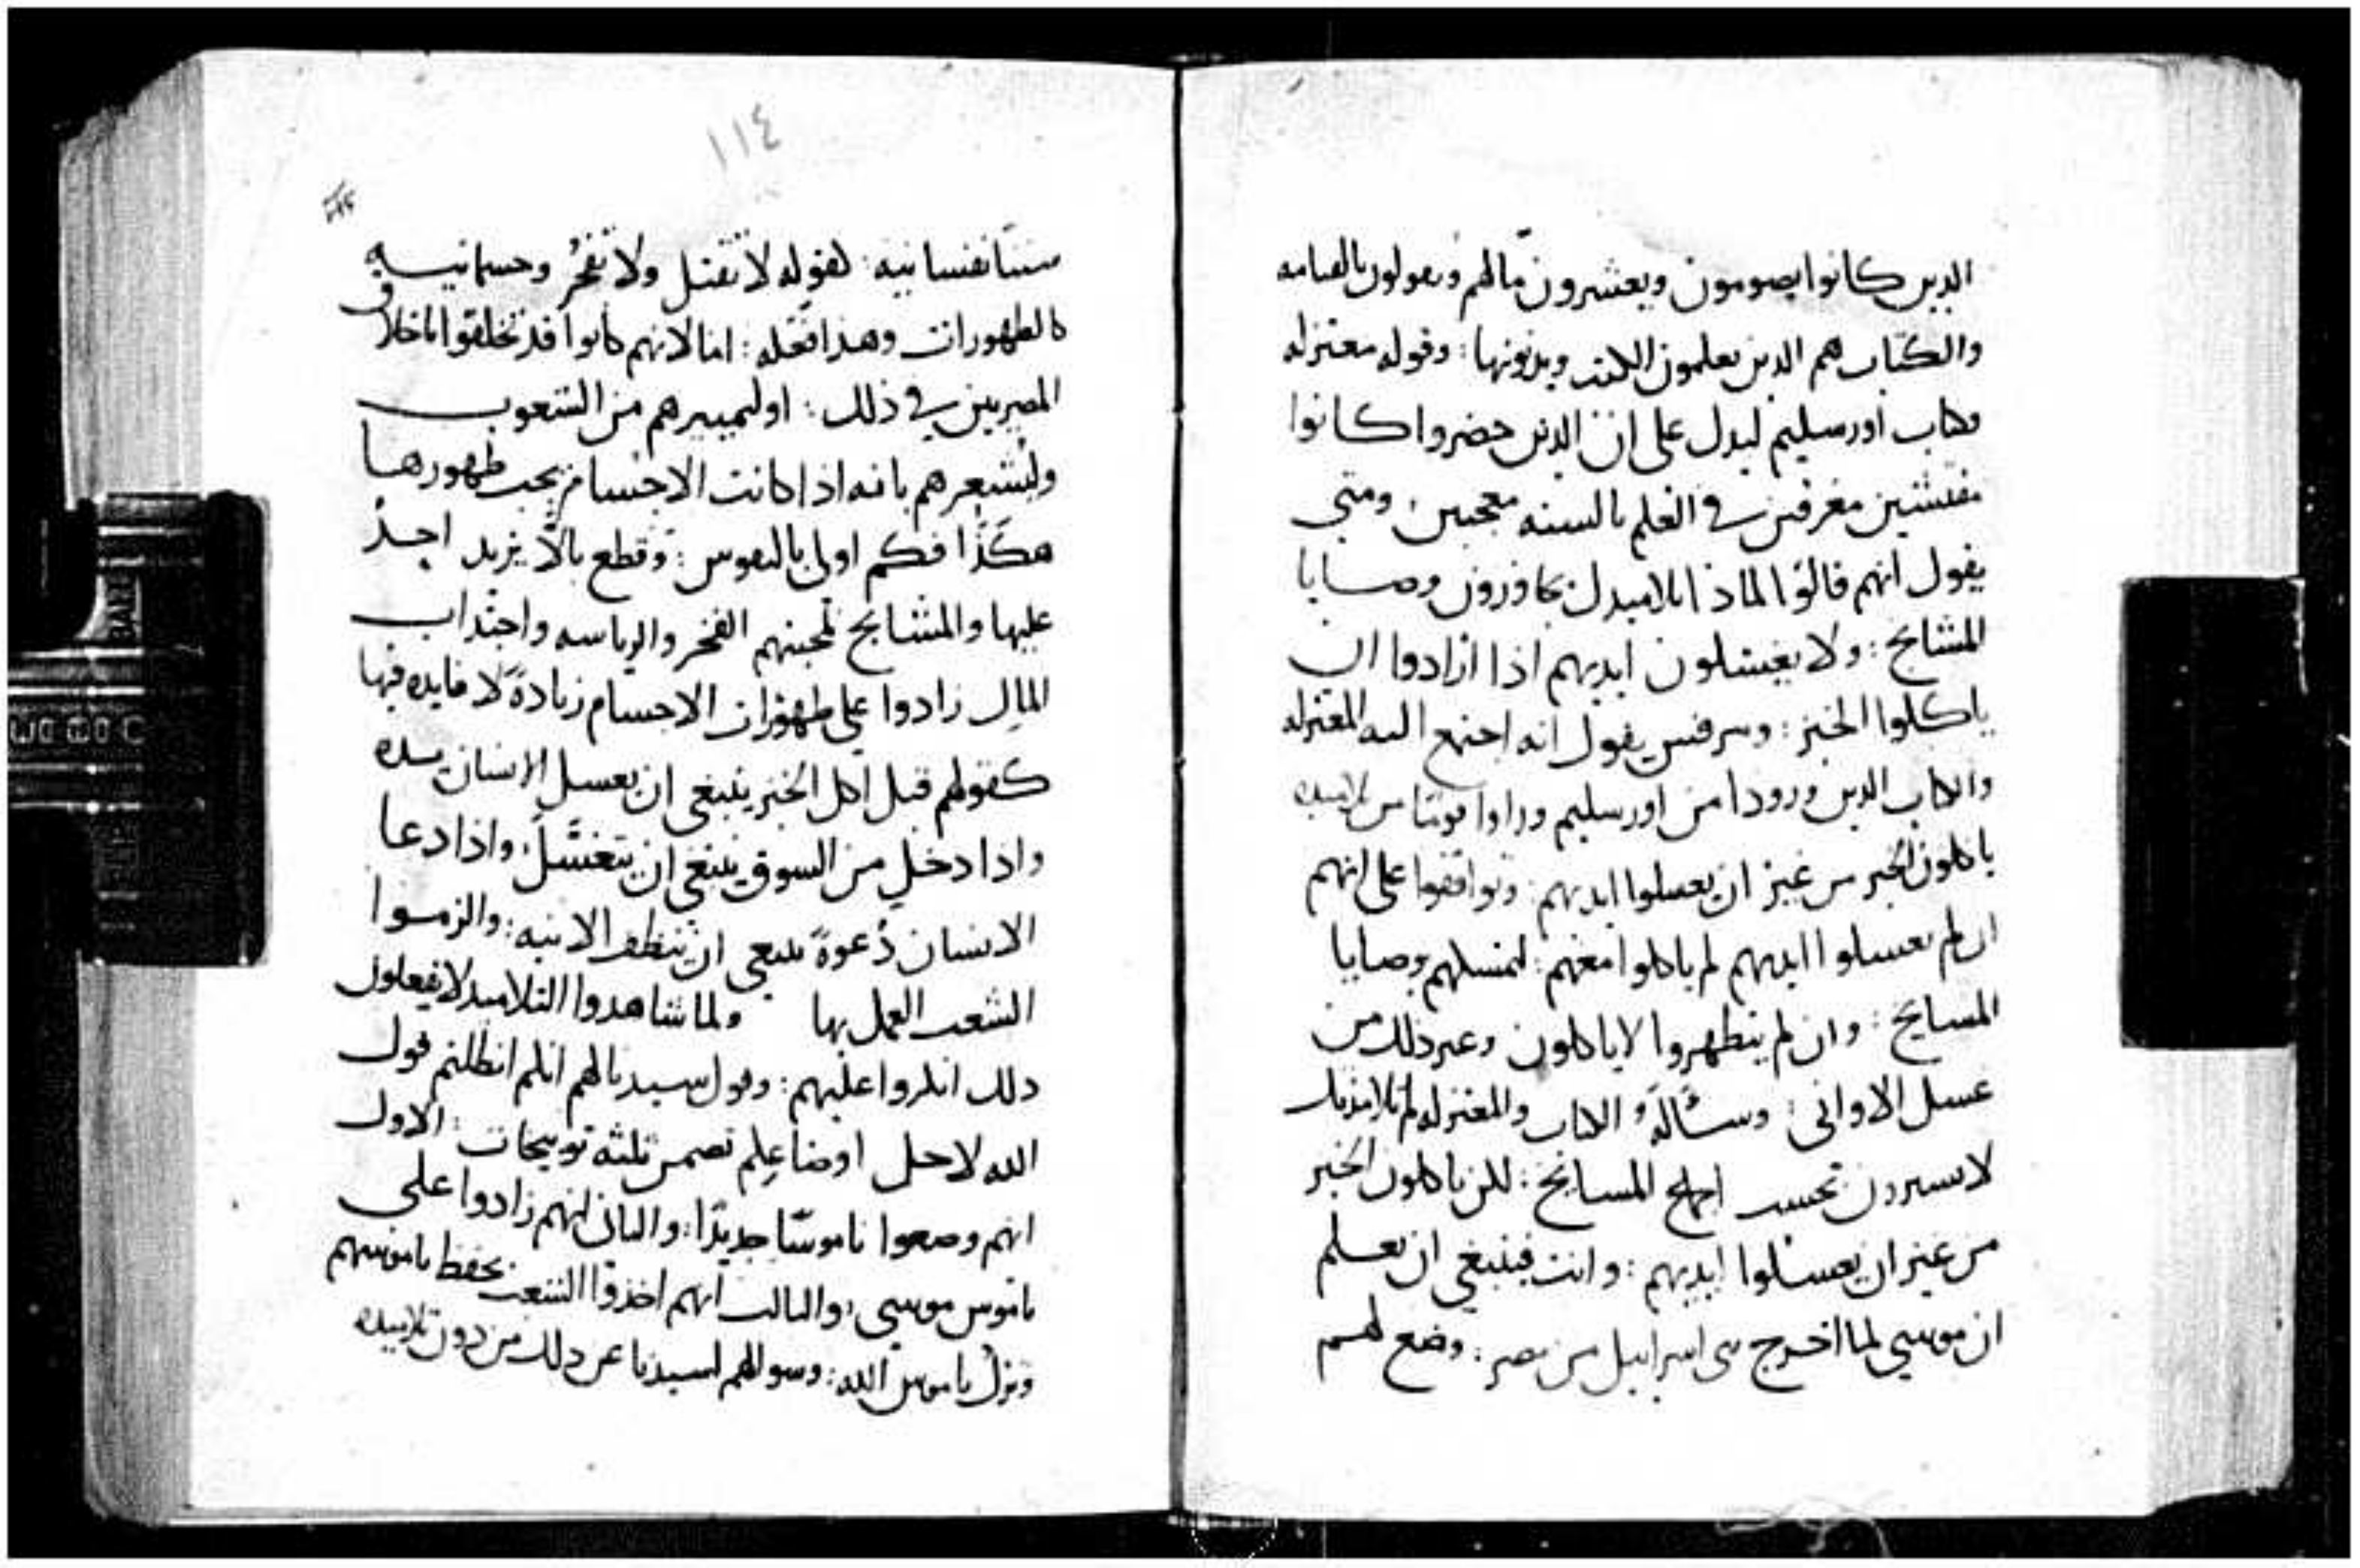 الدين كانوا يصومون ويعشرون مالهم ويقولون بالقيامه
والكتاب هم الدين يعلمون الكتب ويدونها : وقوله معتزله
وكتاب اورسليم ليدل على ان الدين حضروا كانوا
مفتشين مغرقين في العلم بالسنه معجبين ومتى
يقول انهم قالوا لماذا تلاميدك يجاوزون وصايا
المشايخ : ولا يغسلون ايديهم اذا ارادوا ان
ياكلوا الخبز : ومرقس يقول انه اجتمع اليه المعتزله
والكتاب الدين وردوا من اورسليم وراوا قوما من تلاميده
ياكلون الخبز من غير ان يغسلوا ايديهم : وتوافقوا على انهم
ان لم يغسلوا ايديهم لم ياكلوا معهم : لتمسكهم بوصايا
المسايخ : وان لم يتطهروا لا ياكلون وغير دلك من
غسل الاواني : وسأله الكتاب والمعتزله لم تلاميدك
لا يسيرون بحسب المسايخ : لكن ياكلون الخبز
من غير ان يغسلوا ايديهم : وانت فينبغي ان تعلم
ان موسي لما اخرج بني اسراييل من مصر : وضع لهم
١١٤
سننا نفسانيه : كقوله لا تقتل ولا تفجر وجسمانيه
كالطهورات وهذا فعله : اما لانهم كانوا قد تخلقوا باخلاق
المصريين في ذلك : او ليميزهم من الشعوب
وليشعرهم بانه اذا كانت الاجسام يجب طهورها
هكذا فكم اولى بالنفوس : وقطع بالا يزيد احد
عليها والمشايخ لمحبتهم الفخر والرياسه واجتداب
المال زادوا على طهورات الاجسام زيادة لا فايده فيها
كقولهم قبل اكل الخبز ينبغي ان يغسل الانسان يده
واذا دخل من السوق ينبغي ان يتغسل : واذا دعا
الانسان دعوة ينبغي ان ينظف الانيه : والزموا
الشعب العمل بها ولما شاهدوا التلاميد لا يفعلون
دلك انكروا عليهم : وقول سيدنا لهم انكم ابطلتم قول
الله لاجل اوضاعكم تضمن ثلثه توبيخات : الاول
انهم وضعوا ناموسا جديدا : والثاني انهم زادوا على
ناموس موسي : والثالث انهم اخذوا الشعب بحفظ ناموسهم
وترك ناموس الله : وسوالهم لسيدنا عن دلك من دون تلاميده